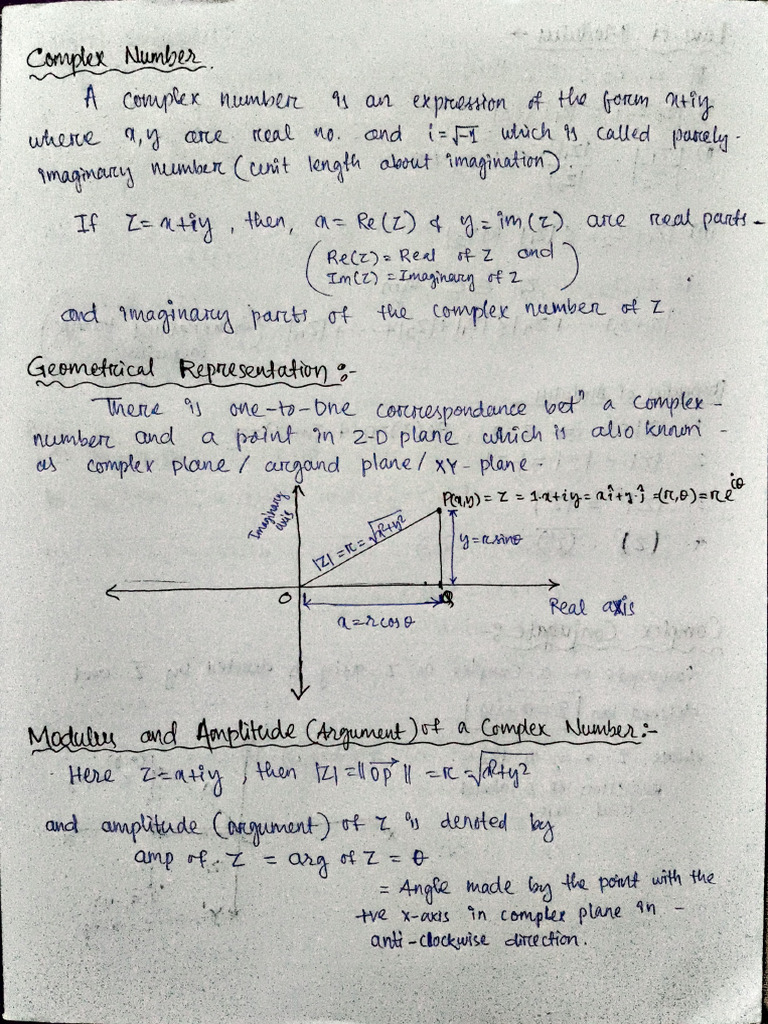 Complex Number.
A complex number is an expression of the form x+iy
where x,y are real no. and i=√-1 which is called purely-
imaginary number (unit length about imagination).
If Z=x+iy, then, x= Re(Z) & y=im(z) are real parts-
(Re(Z)= Real of Z and
Im(Z) = Imaginary of Z)
and imaginary parts of the complex number of Z.
Geometrical Representation:-
There is one-to-One correspondance betⁿ a complex-
number and a point in 2-D plane which is also known-
as complex plane / argand plane/ XY-plane.
Imaginary axis
P(x,y) = Z = 1.x+iy = xî+yĵ =(r,θ)=re^iθ
|Z|=r=√x²+y²
y=rsinθ
O
Q
Real axis
x=rcosθ
Modulus and Amplitude (Argument) of a Complex Number:-
Here Z=x+iy, then |Z|=||OP→|| =r=√x²+y²
and amplitude (argument) of Z is denoted by
amp of Z = arg of Z = θ
= Angle made by the point with the
+ve x-axis in complex plane in -
anti-clockwise direction.